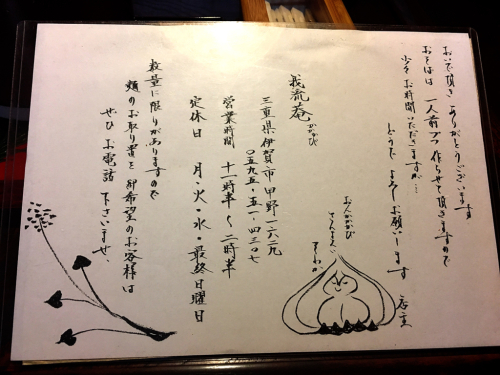 おいで頂き ありがとうございます
おそばは 一人前ずつ 作らせて頂きますので
少々お時間いただきますが…
どうぞ よろしくお願いします 店主
我流菴
がりゅうあん
三重県伊賀市甲野二六二九
〇五九五・五一・四三〇七
営業時間 十一時半〜二時半
定休日 月・火・水・最終日曜日
数量に限りがありますので
類のお取り置を御希望のお客様は
ぜひ お電話 下さいませ。